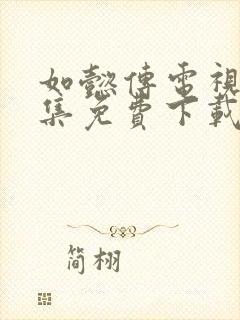 如懿傳電視
集免費下載
简栩